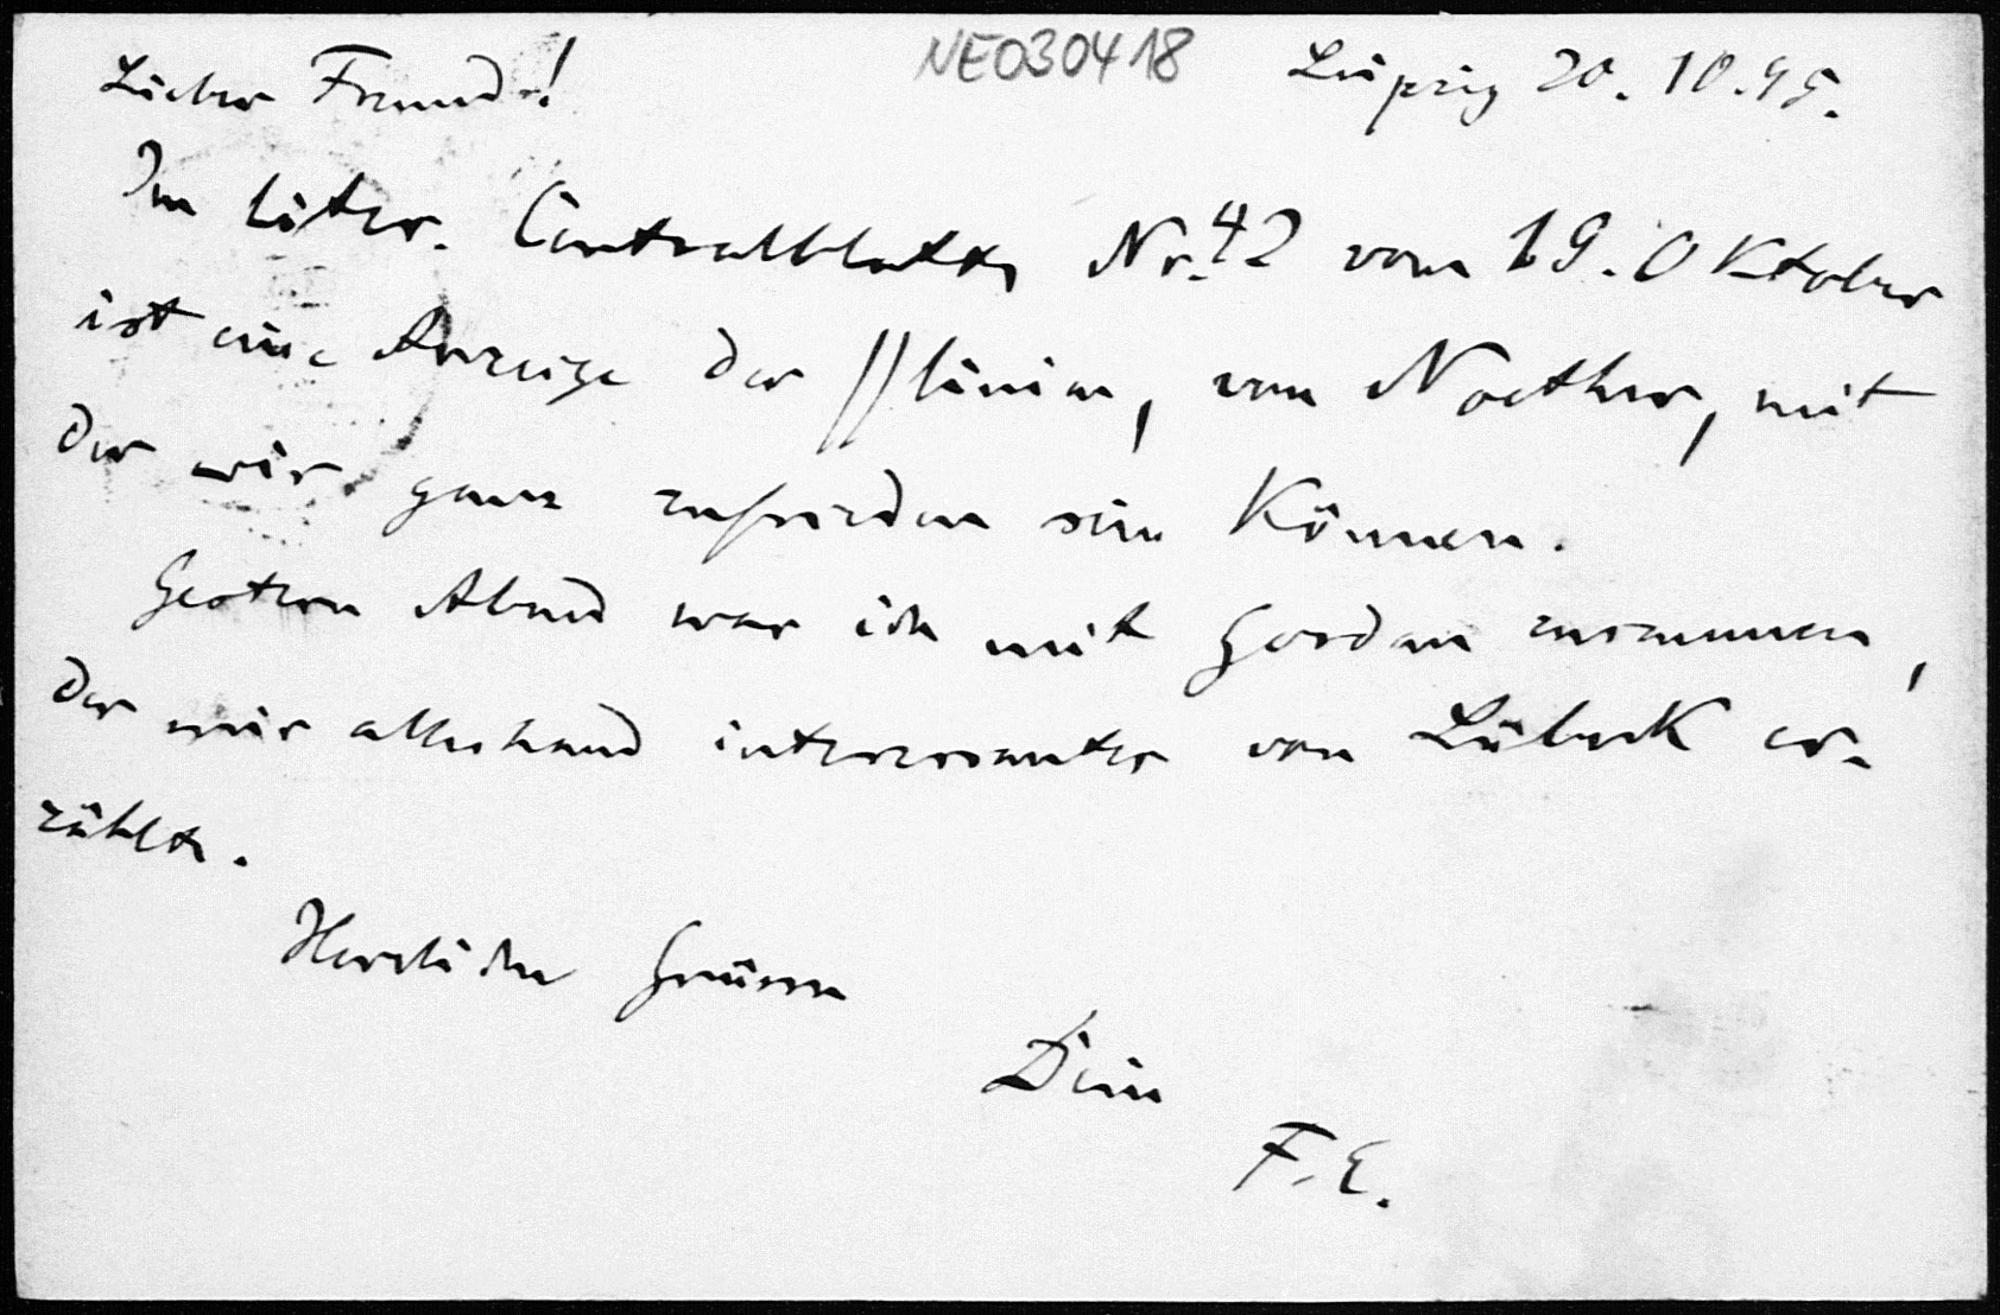 NE030418
Lieber Freund! Leipzig 20. 10. 95.
Im Liter. Centralblatte Nr. 42 vom 19. Oktober
ist eine Anzeige der //linien, von Noether, mit
der wir ganz zufrieden sein können.
Gestern Abend war ich mit Gordan zusammen,
der mir allerhand interessantes von Lübeck er-
zählte.
Herzliche Grüsse
Dein
F. E.